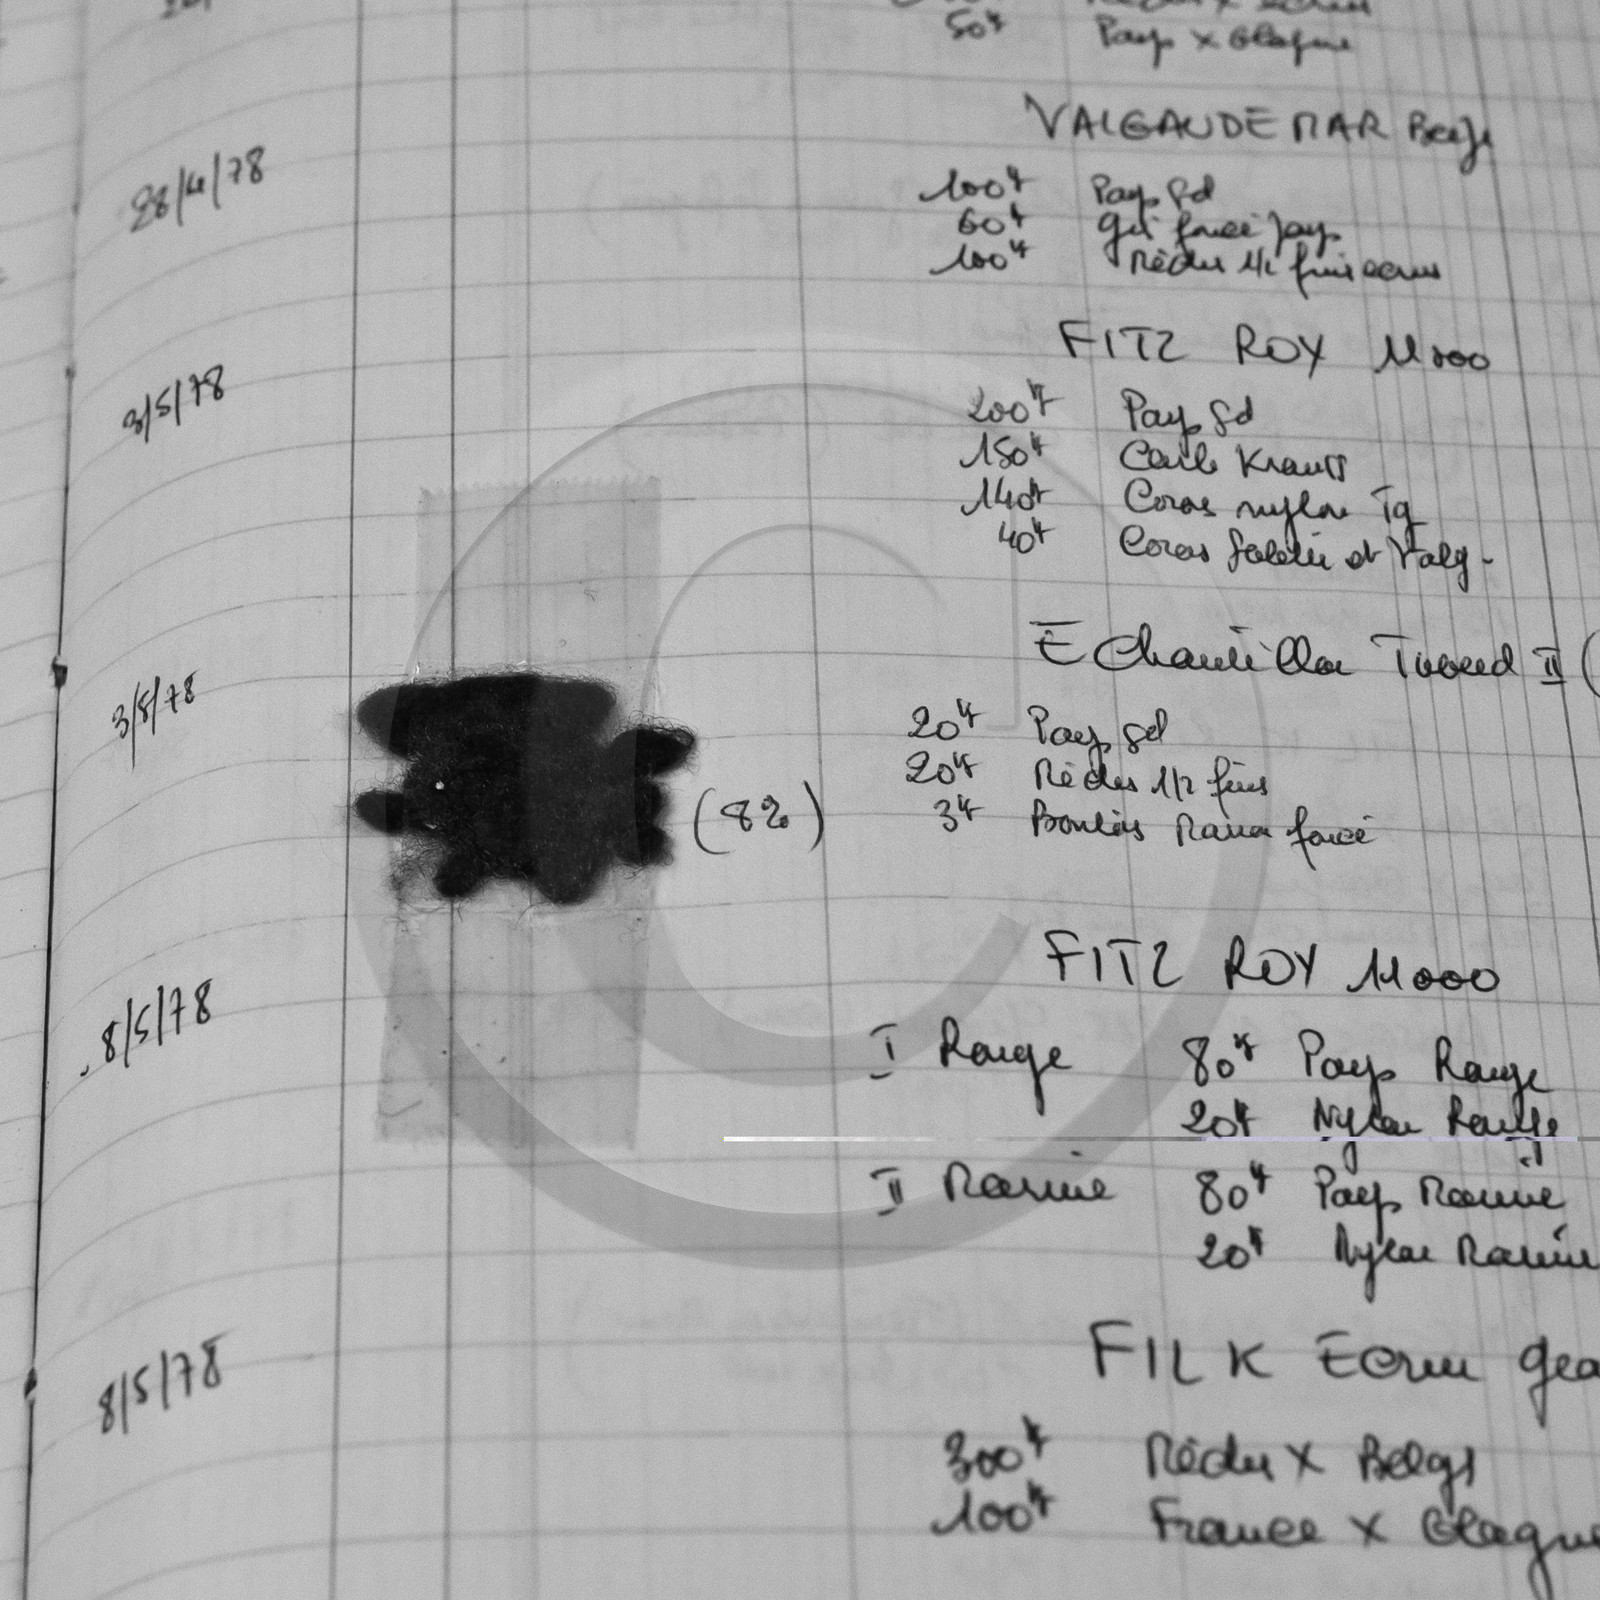 50k Pays x Blague
VALGAUDEMAR Beige
28/4/78
100k Pays gd
60k Gri foncé Pays
100k Mèches 1/2 fins écrus
FITZ ROY 11000
3/5/78
200k Pays gd
150k Carb Krauss
140k Coras nylon Tg
40k Coras et Valg.
Echantillon Tweed II (
3/5/78
20k Pays gd
20k Mèches 1/2 fins
(8%)
3k Boutons Mara foncé
FITZ ROY 11000
8/5/78
I Rouge 80k Pays Rouge
20k Nylon Rouge
II Marine 80k Pays Marine
20k Nylon Marine
FILK Ecru
8/5/78
300k x Belge
100k France x